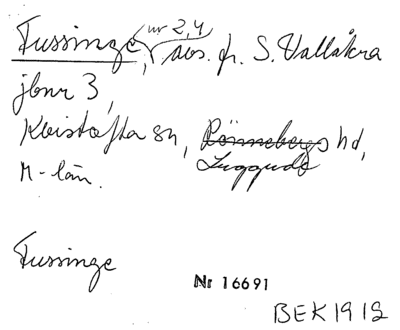 Tussinge, nr 2,4 avs. fr. S. Vallåkra
jbnr 3,
Kvistofta sn, Rönnebergs hd,
Luggude
M-län.
Tussinge
Nr 16691
BEK 1912